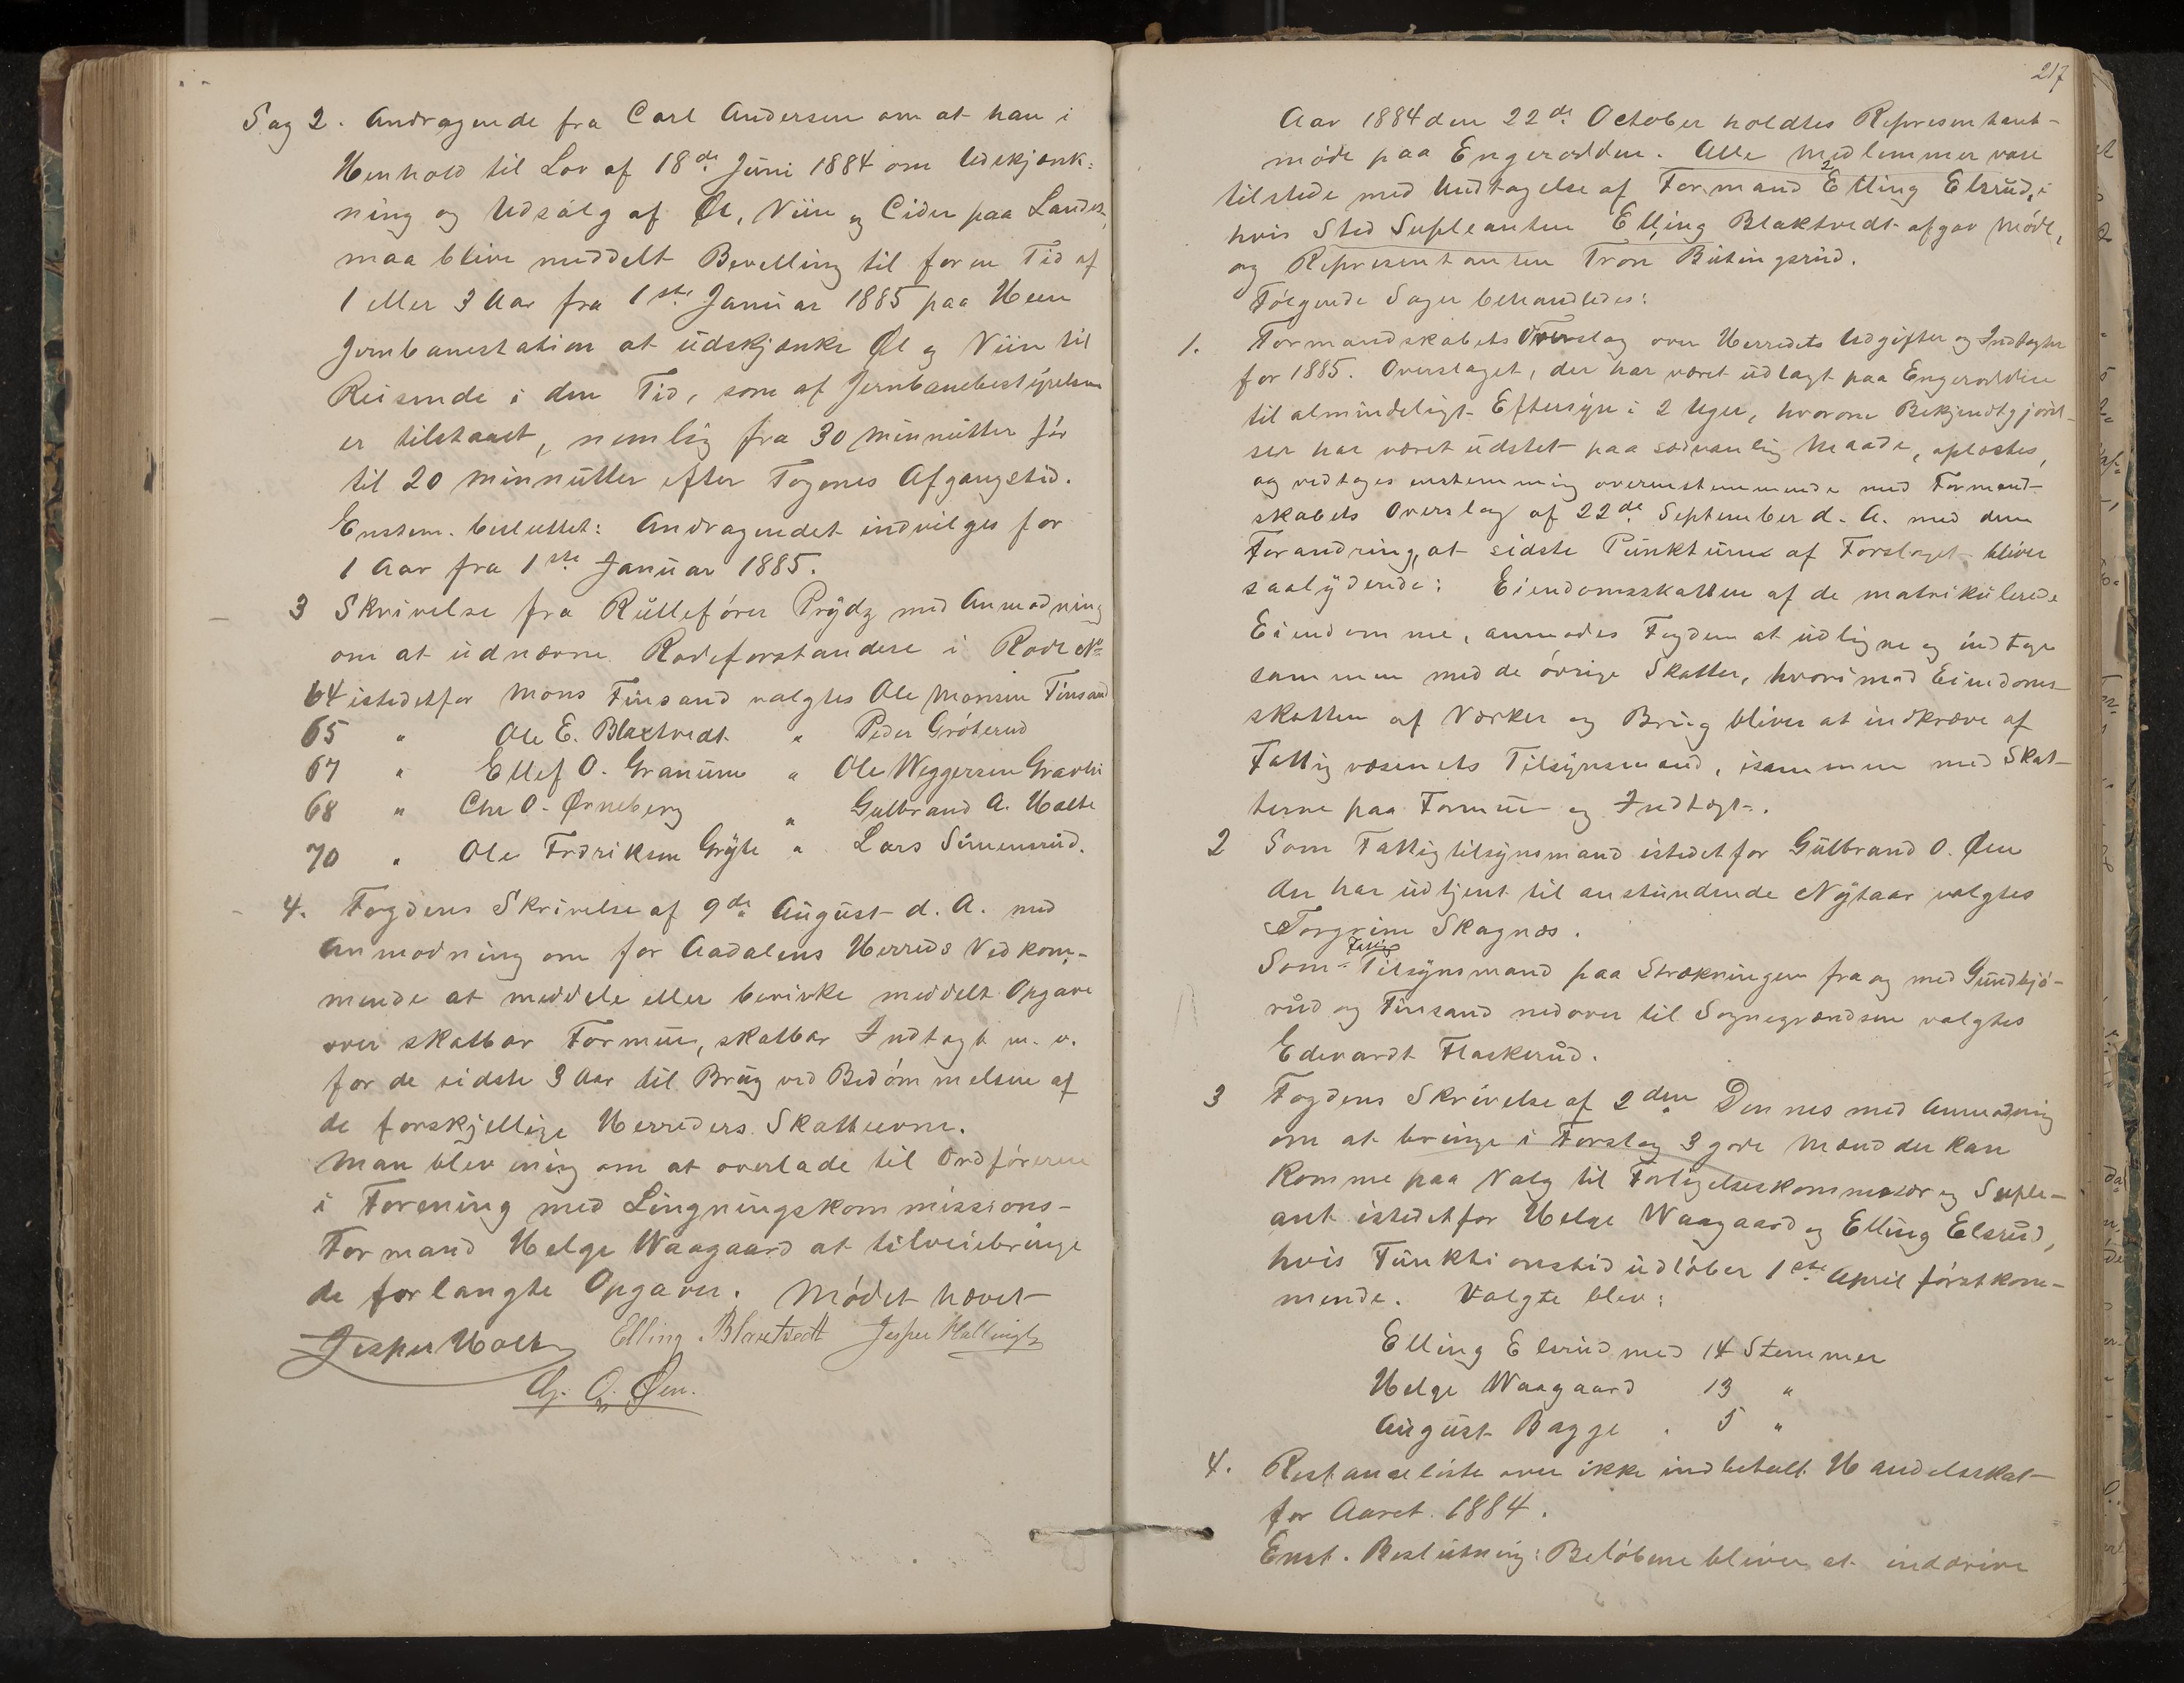 Sag 2. Andragende fra Carl Andersen om at han i
Henhold til Lov af 18de Juni 1884 om Udskjænk-
ning og Udsalg af Øl, Viin og Cider paa Landet,
maa blive meddelt Bevelling til for en Tid af
1 eller 3 Aar fra 1ste Januar 1885 paa Heen
Jernbanestation at udskjænke Øl og Viin til
Reisende i den Tid, som af Jernbanebestyrelsen
er tilstaaet, nemlig fra 30 Minnutter før
til 20 Minnutter efter Togenes Afgangstid.
Enstem. besluttet: Andragendet indvilges for
1 Aar fra 1ste Januar 1885.
3 Skrivelse fra Rullefører Prydz med Anmodning
om at udnævne Rodeforstandere i Rode No
64 istedetfor Mons Finsand valgtes Ole Monsen Finsand
65 " Ole E. Blaxtvedt " Peder Grøterud
67 " Ellef O. Granum " Ole Weggersen Gravli
68 " Chr O. Ørneberg " Gulbrand A. Holte
70 " Ole Fredriksen Gryte " Lars Simensrud.
4. Fogdens Skrivelse af 9de August d. A. med
Anmodning om for Aadalens Herreds Vedkom-
mende at meddele eller bevirke meddelt Opgave
over skatbar Formue, skatbar Indtægt m. v.
for de sidste 3 Aar til Brug ved Bedømmelsen af
de forskjellige Herreders Skatteevne.
Man blev enig om at overlade til Ordføreren
i Forening med Lingningskommissions-
Formand Helge Waagaard at tilveiebringe
de forlangte Opgaver. Mødet hævet
Jesper Holte Elling Blaxtvedt Jesper Hallingby
G. O. Øen.
217
Aar 1884 den 22de October holdtes Represemtant-
møde paa Engerodden. Alle Medlemmer vare
tilstede med Undtagelse af Formand Elling Elsrud, i
hvis Sted Supleanten Elling Blaktvedt afgav Møde,
og Representanten Tron Butingsrud.
Følgende Sager behandledes:
1. Formandskabets Overslag over Herredets Udgifter og Indtægter
for 1885. Overslaget, der har været udlagt paa Engerodden
til almindeligt Eftersyn i 2 Uger, hvorom Bekjendtgjørel-
ser har været udstet paa sedvanlig Maade, oplæstes,
og vedtoges enstemmig overenstemmende med Formand-
skabets Overslag af 22de September d. A. med den
Forandring, at sidste Punktum af Forslaget bliver
saalydende: Eiendomsskatten af de matrikulerede
Eiendomme, anmodes Fogden at udligne og indtage
sammen med de øvrige Skatter, hvorimod Eiendoms-
skatten af Værker og Brug bliver at indkræve af
Fattigvæsenets Tilsynsmand, isammen med Skat-
terne paa Formue og Indtægt.
2 Som Fattigtilsynsmand istedetfor Gulbrand O. Øen
der har udtjent til anstundende Nytaar valgtes
Torgrim Skagnæs.
Som Fattig Tilsynsmand paa Strækningen fra og med Gundbjø-
rud og Finsand nedover til Sognegrændsen valgtes
Edevardt Flaskerud.
3 Fogdens Skrivelse af 2den Dennes med Anmodning
om at bringe i Forslag 3 gode Mænd der kan
komme paa Valg til Forligelseskommesær og Suple-
ant istedetfor Helge Waagaard og Elling Elsrud,
hvis Funktionstid udløber 1ste April førstkom-
mende. Valgte blev:
Elling Elsrud med 14 Stemmer
Helge Waagaard 13 "
August Bagge . 5 "
4. Restanseliste over ikke indbetalt Handelsskat
for Aaret 1884.
Enst. Beslutning: Beløbene bliver at inddrive